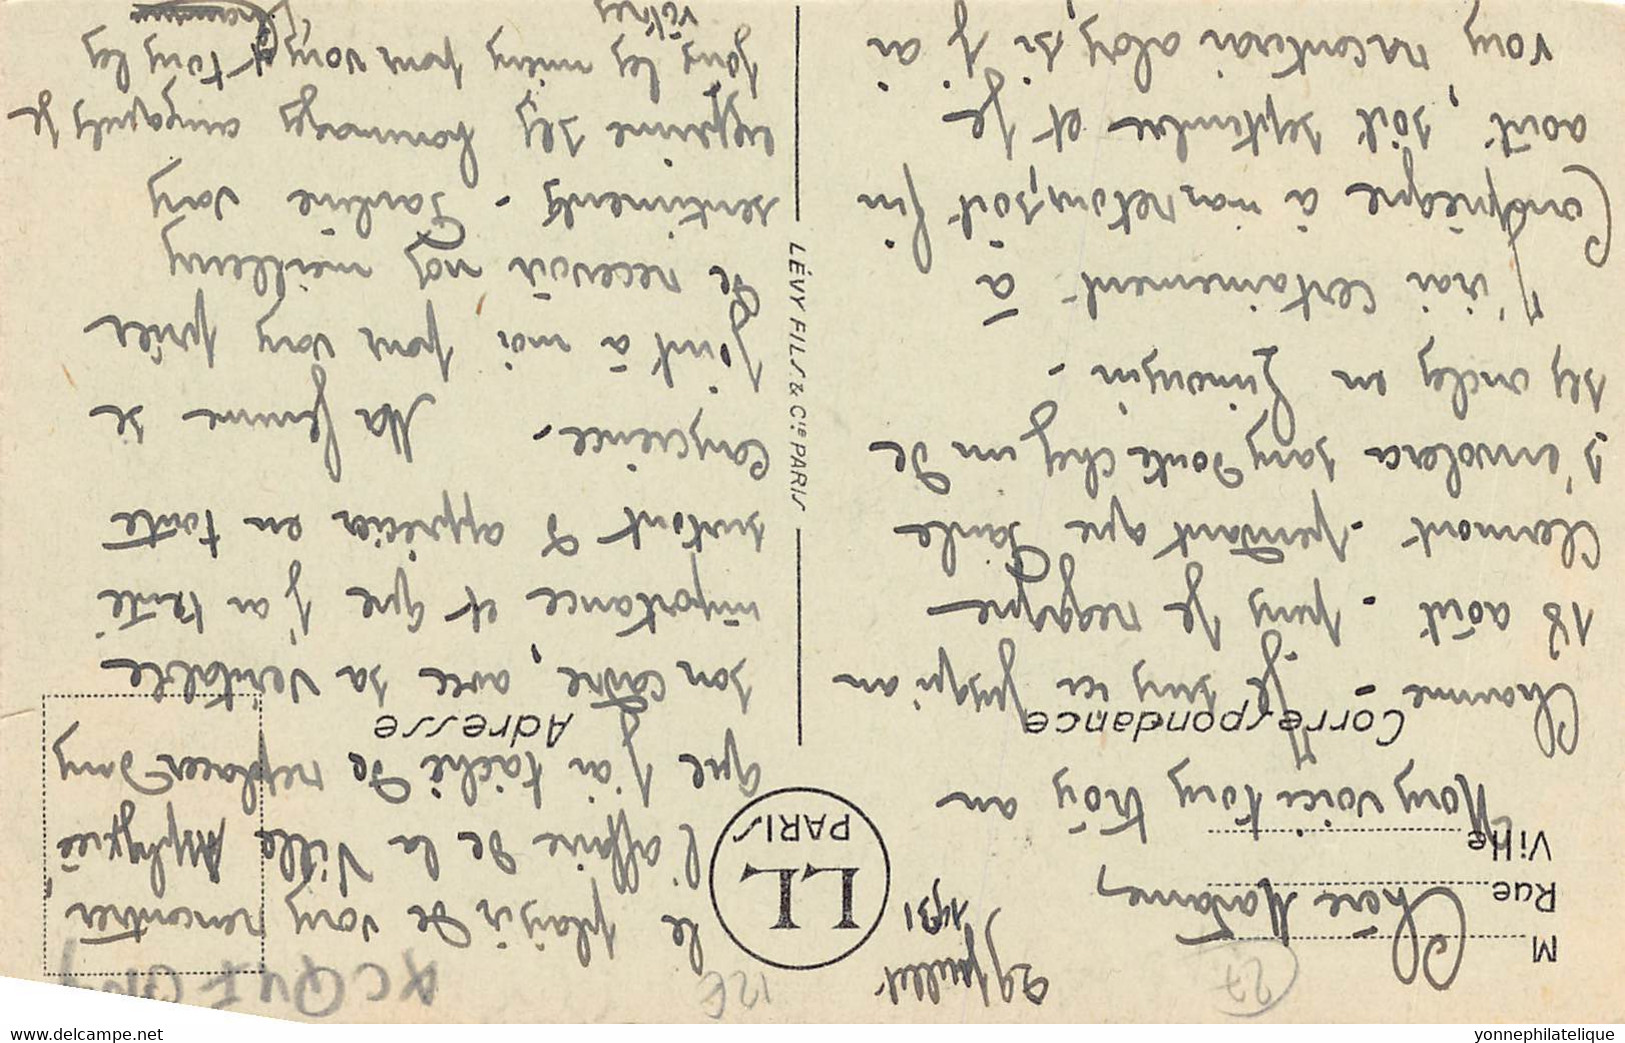 29 juillet
1931
Chère Madame,
Nous voici tous trois au
Charme - Je suis ici jusqu'au
18 août - puis je regagne
Clermont - pendant que Paule
s'envolera sans doute chez un de
ses oncles en Limousin -
J'irai certainement à
Compiègne à mon retour, soit fin
août, soit septembre et je
vous raconterai alors si j'ai
le plaisir de vous rencontrer
l'affaire de la Ville Asphyxiée
que j'ai tâché de replacer dans
son cadre, avec sa véritable
importance et que j'ai tenté
surtout d'apprécier en toute
conscience - Ma femme se
joint à moi pour vous prier
de recevoir nos meilleurs
sentiments - Pauline vous
exprime ses hommages auxquels je
joins les miens pour vous et tous les
vôtres
M
Rue
Ville
Correspondance
Adresse
LL
PARIS
LÉVY FILS & Cie PARIS
27
12 €
www.delcampe.net
yonnephilatelique